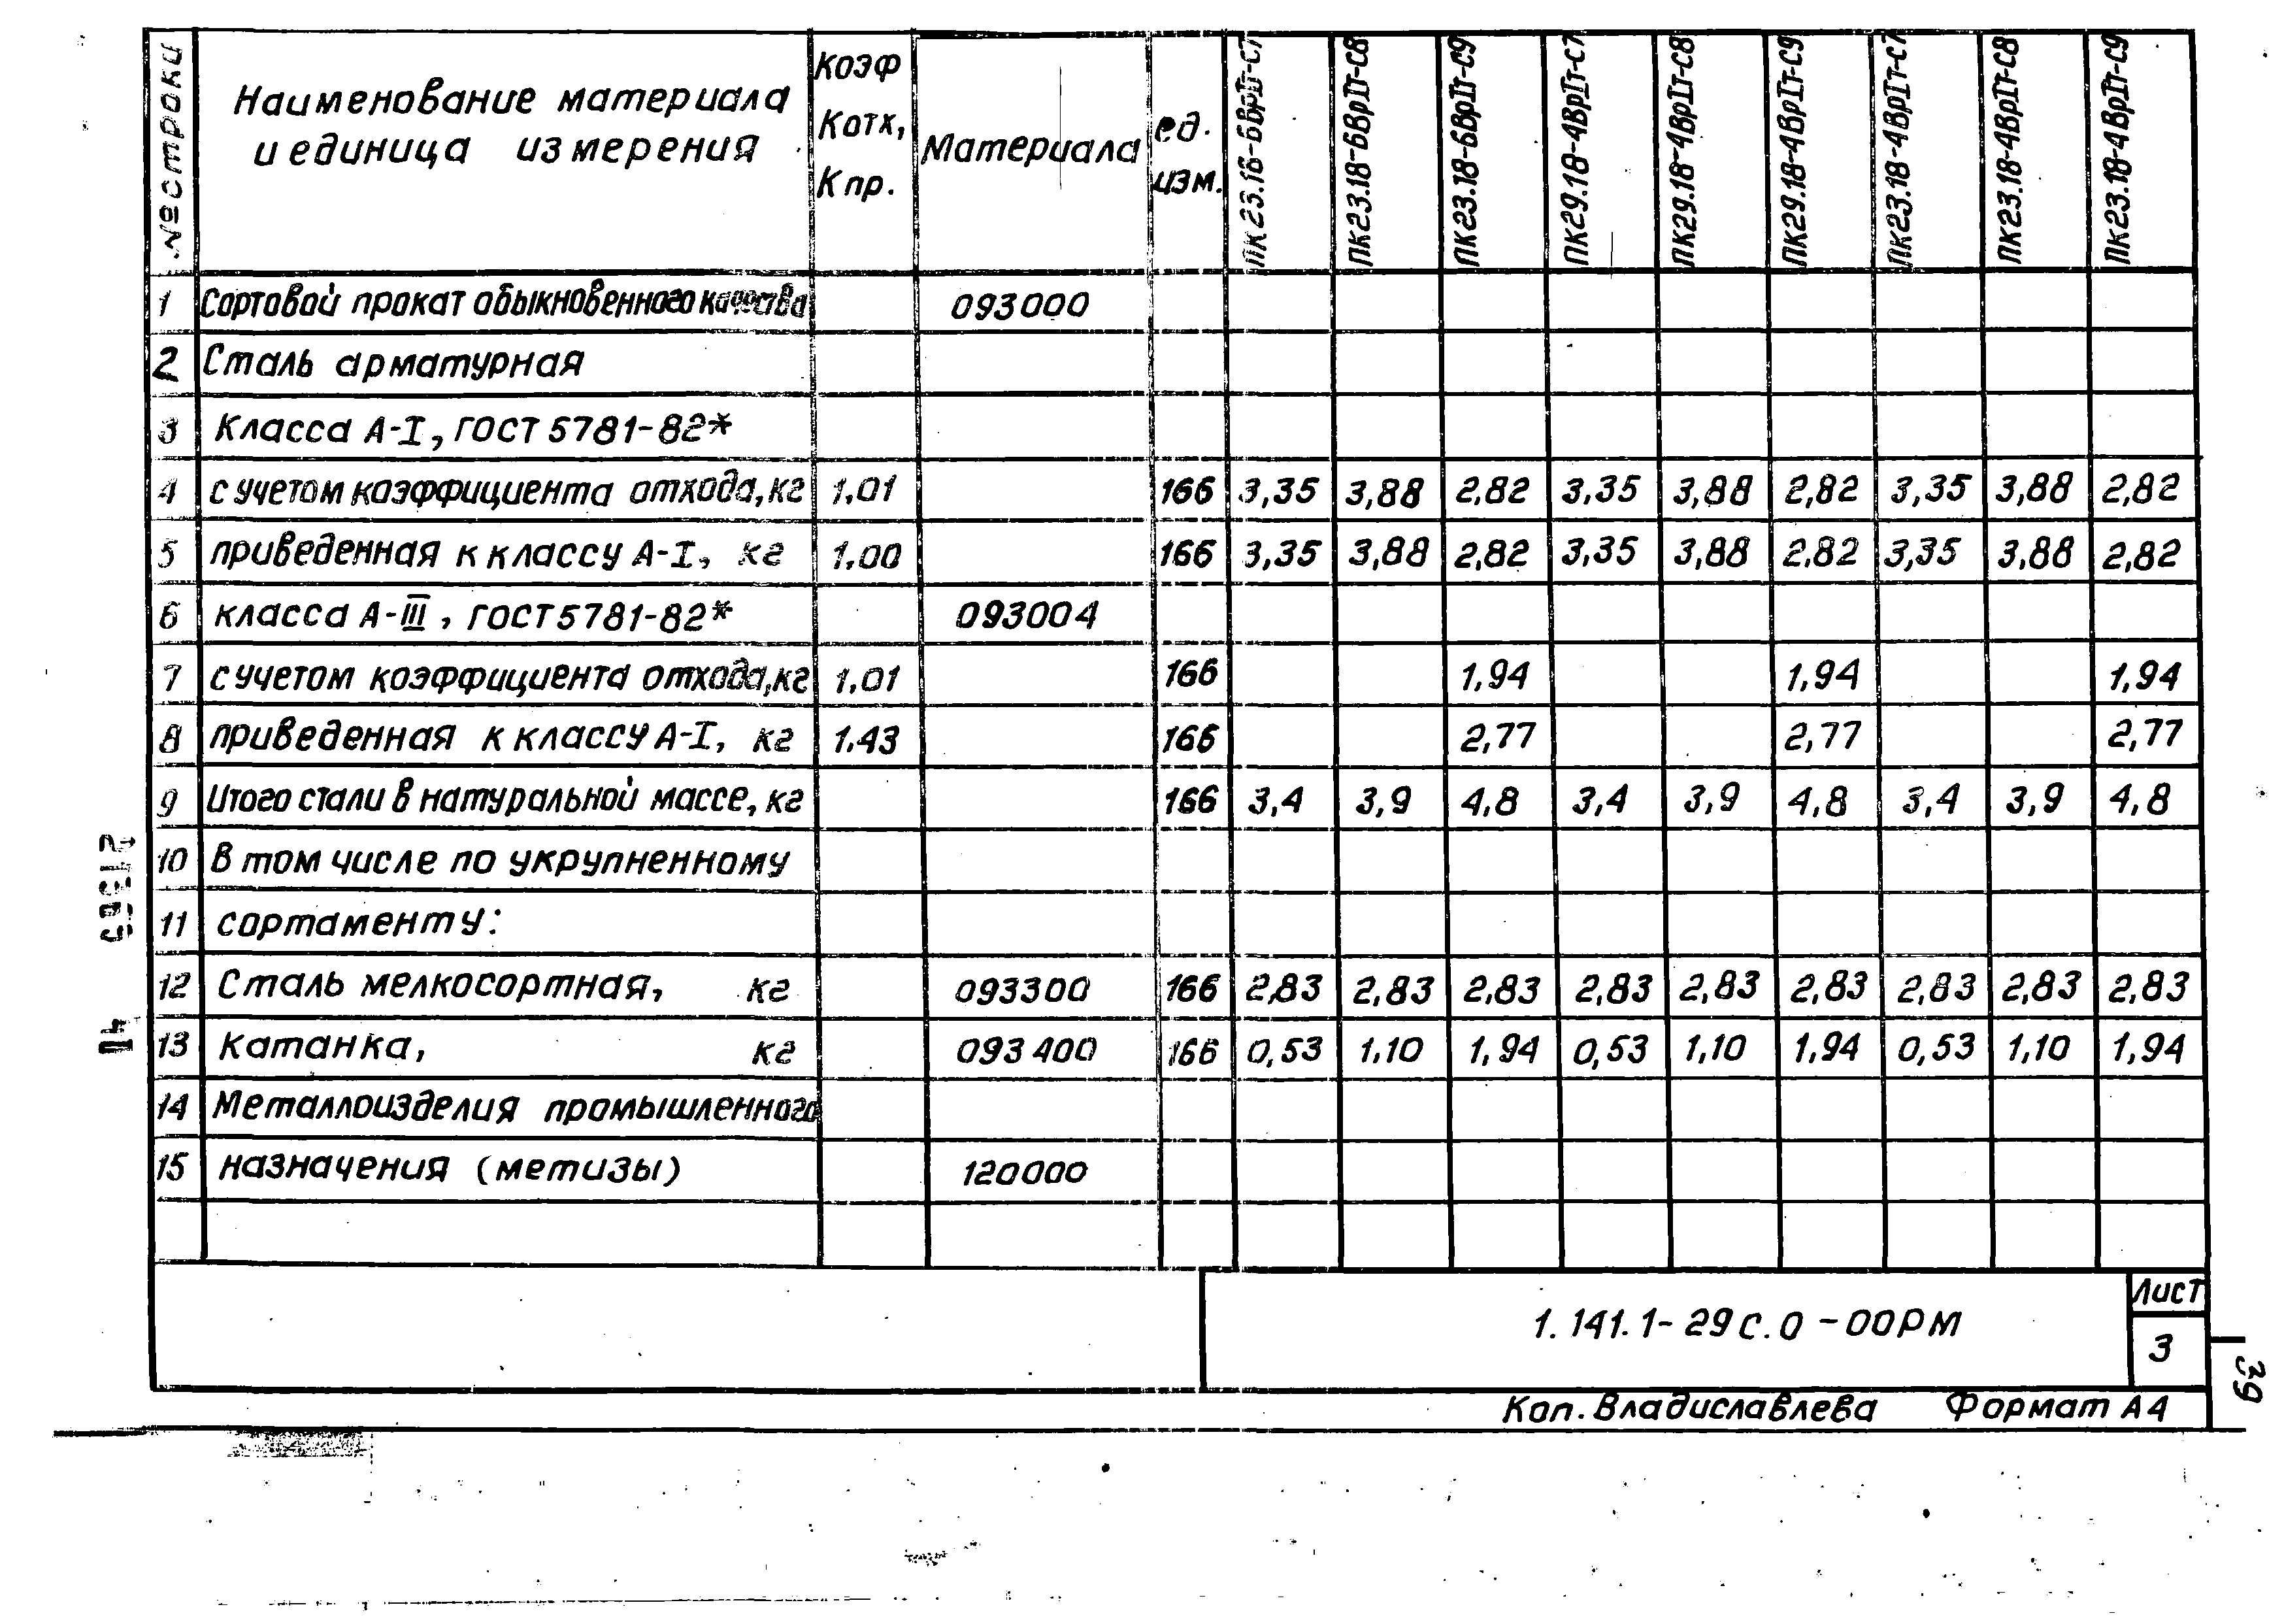 № строки
Наименование материала
и единица измерения
Коэф
Котх,
Кпр.
Материала
ед.
изм.
ПК23.18-6ВрIIт-С7
ПК23.18-6ВрIIт-С8
ПК23.18-6ВрIIт-С9
ПК29.18-4ВрIIт-С7
ПК29.18-4ВрIIт-С8
ПК29.18-4ВрIIт-С9
ПК23.18-4ВрIIт-С7
ПК23.18-4ВрIIт-С8
ПК23.18-4ВрIIт-С9
1 Сортовой прокат обыкновенного качества 093000
2 Сталь арматурная
3 Класса А-I, ГОСТ 5781-82*
4 с учетом коэффициента отхода, кг 1.01 166 3,35 3,88 2,82 3,35 3,88 2,82 3,35 3,88 2,82
5 приведенная к классу А-I, кг 1.00 166 3,35 3,88 2,82 3,35 3,88 2,82 3,35 3,88 2,82
6 класса А-III, ГОСТ 5781-82* 093004
7 с учетом коэффициента отхода, кг 1.01 166 1,94 1,94 1,94
8 приведенная к классу А-I, кг 1.43 166 2,77 2,77 2,77
9 Итого стали в натуральной массе, кг 166 3,4 3,9 4,8 3,4 3,9 4,8 3,4 3,9 4,8
10 В том числе по укрупненному
11 сортаменту:
12 Сталь мелкосортная, кг 093300 166 2,83 2,83 2,83 2,83 2,83 2,83 2,83 2,83 2,83
13 Катанка, кг 093400 166 0,53 1,10 1,94 0,53 1,10 1,94 0,53 1,10 1,94
14 Металлоизделия промышленного
15 назначения (метизы) 120000
1.141.1-29с.0-00РМ
Лист
3
39
Коп. Владиславлева Формат А4